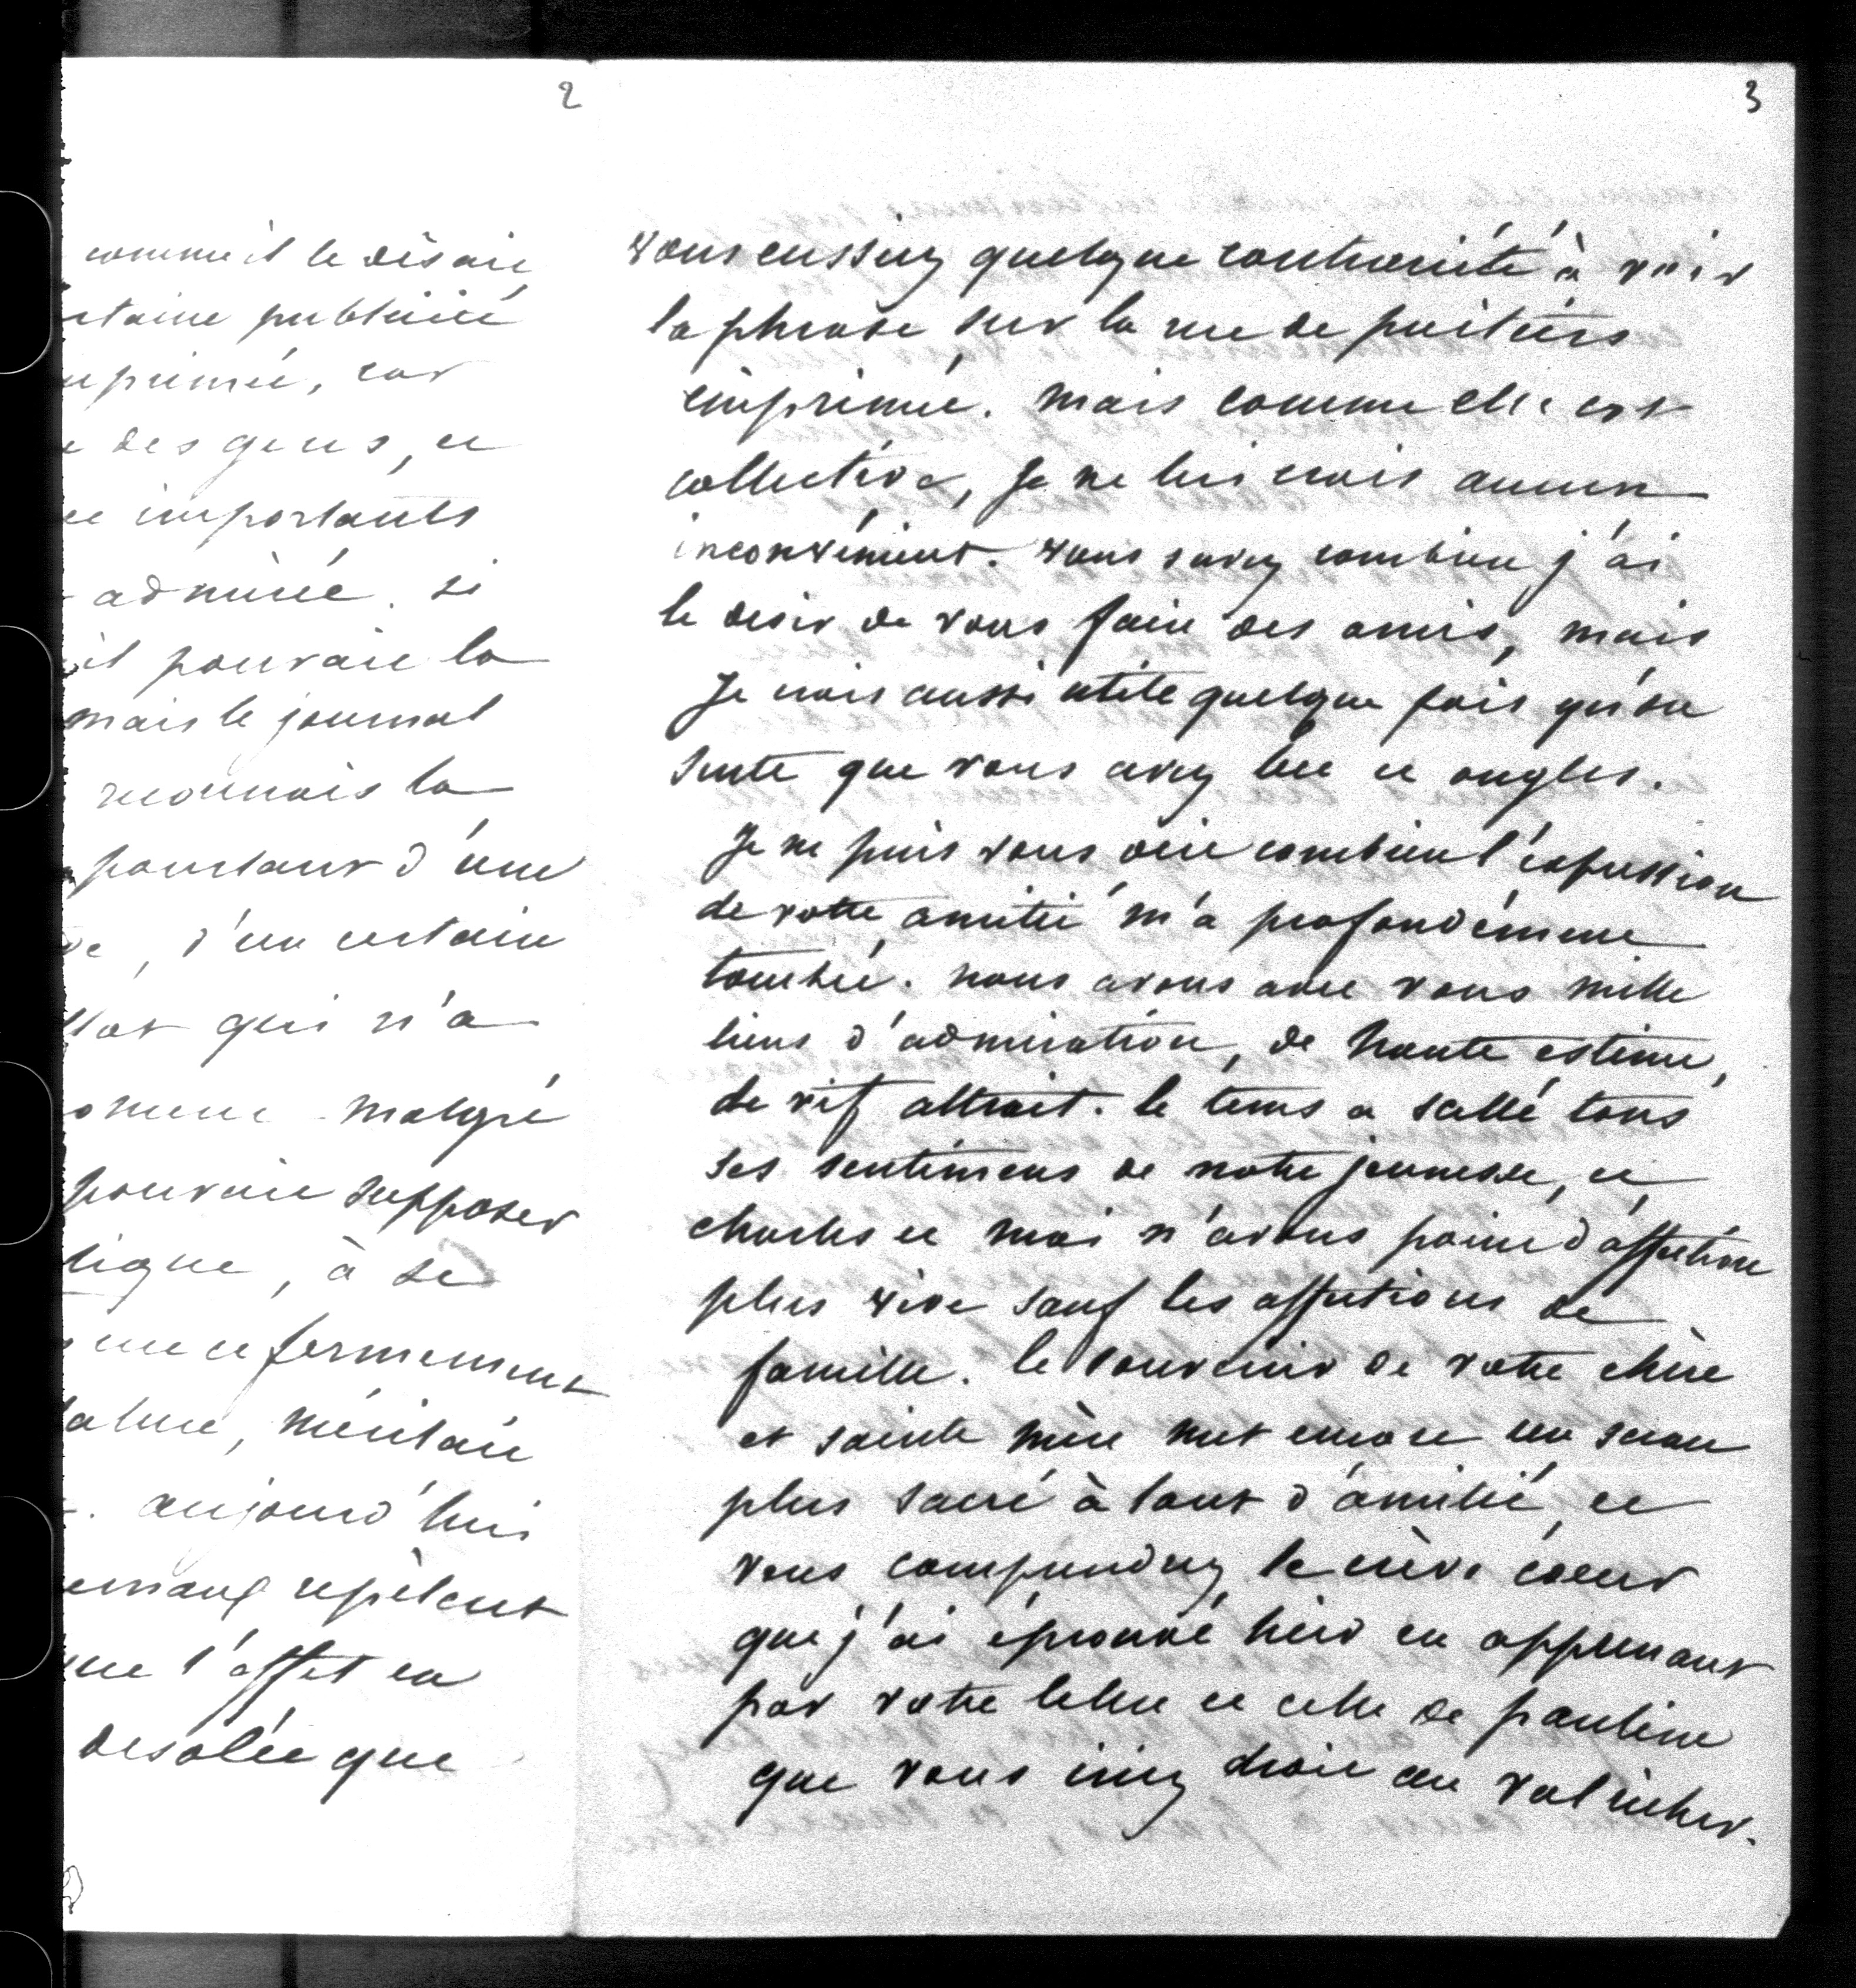 2
comme il le disait
rtaine publicité
mprimée, car
e des gens, et
et importants
admirée. si
il pouvait la
mais le journal
reconnais la
pourtant d'une
de, d'un certain
tat qui n'a
malgré
pouvait supposer
tique, à se
et fermement
méritait
aujourd'hui
répètent
que l'effet en
desolée que
3
vous eussiez quelque contrariété à voir
la phrase sur la rue de poitiers
imprimée. mais comme elle est
collective, je ne lui crois aucun
inconvénient. vous savez combien j'ai
le desir de vous faire des amis, mais
je crois aussi utile quelque fois qu'on
sente que vous avez bec et ongles.
Je ne puis vous dire combien l'expression
de votre amitié m'a profondément
touchée. nous avons avec vous mille
liens d'admiration, de haute estime,
de vif attrait. le tems a scellé tous
ses sentimens de notre jeunesse, et
charles et moi n'avons point d'affection
plus vive sauf les affections de
famille. le souvenir de votre chère
et sainte mère met encore un sceau
plus sacré à tant d'amitié, et
vous comprendrez le crève coeur
que j'ai éprouvé hier en apprenant
par votre lettre et celle de pauline
que vous iriez droit au val richer.